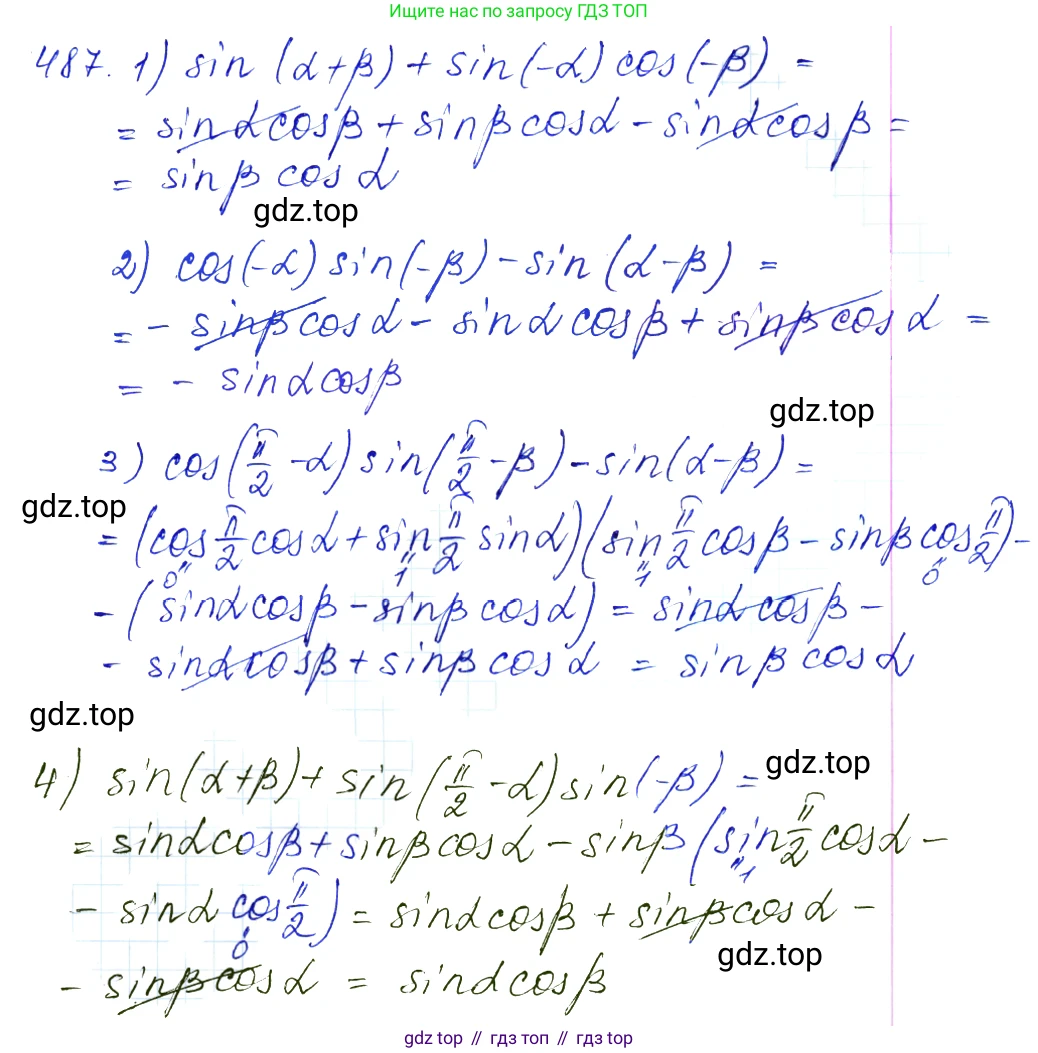 Ищите нас по запросу ГДЗ ТОП
487. 1) sin (α+β) + sin(-α) cos(-β) =
= sinαcosβ + sinβcosα - sinαcosβ =
= sinβ cosα
gdz.top
2) cos(-α) sin(-β) - sin(α-β) =
= - sinβcosα - sinαcosβ + sinβcosα =
= - sinαcosβ
gdz.top
3) cos(π/2 - α) sin(π/2 - β) - sin(α-β) =
gdz.top
= (cos π/2 cosα + sin π/2 sinα)(sin π/2 cosβ - sinβ cos π/2) -
0 1 1 0
- (sinαcosβ - sinβcosα) = sinαcosβ -
- sinαcosβ + sinβcosα = sinβcosα
gdz.top
4) sin(α+β) + sin(π/2 - α) sin(-β) =
gdz.top
= sinαcosβ + sinβcosα - sinβ (sin π/2 cosα -
1
- sinα cos π/2) = sinαcosβ + sinβcosα -
0
gdz.top
- sinβcosα = sinαcosβ
gdz top // гдз топ // gdz.top